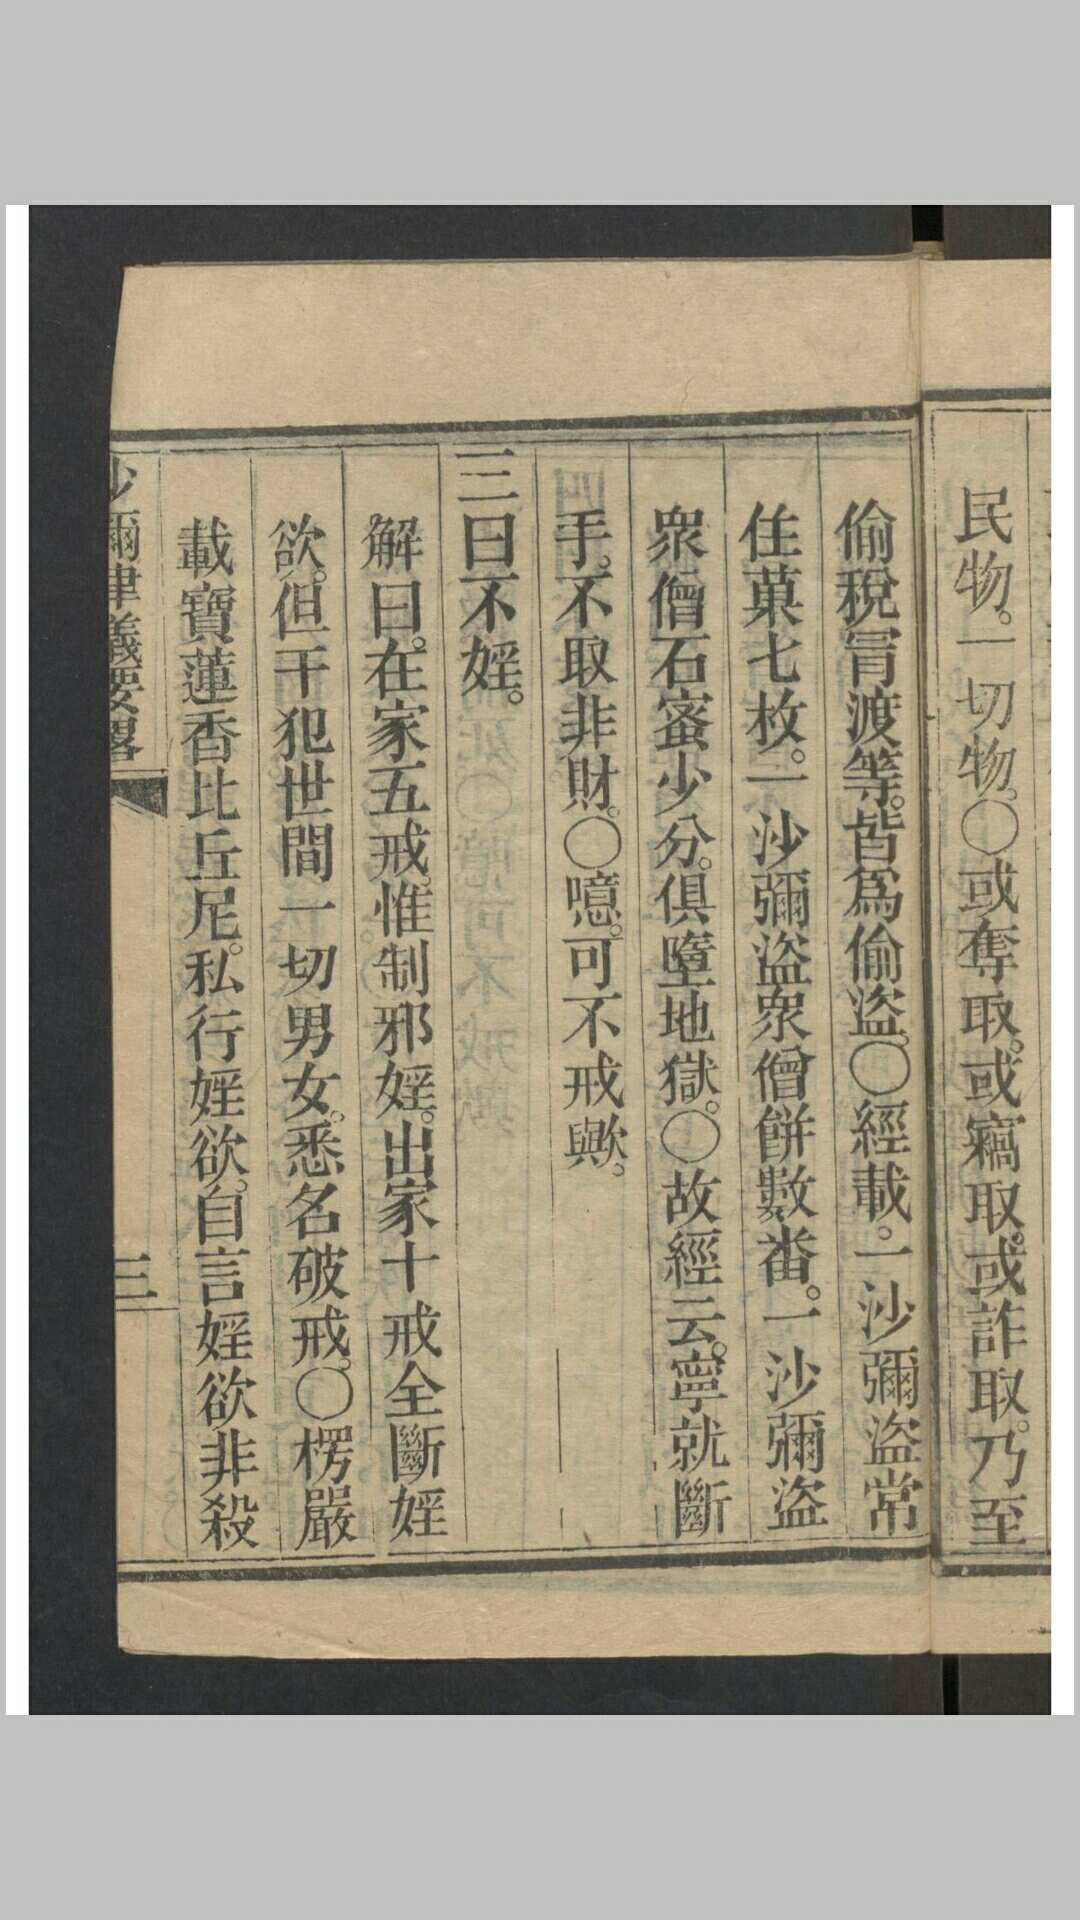 民物。一切物。○或奪取。或竊取。或詐取。乃至
偷稅冐渡等。皆爲偷盜。○經載。一沙彌盜常
住菓七枚。一沙彌盜衆僧餠數番。一沙彌盜
衆僧石蜜少分。俱墮地獄。○故經云。寧就斷
手。不取非財。○噫。可不戒歟。
三曰不婬。
解曰。在家五戒。惟制邪婬。出家十戒全斷婬
欲。但干犯世間一切男女。悉名破戒。○楞嚴
載寶蓮香比丘尼。私行婬欲。自言婬欲非殺
沙彌律儀要畧
三